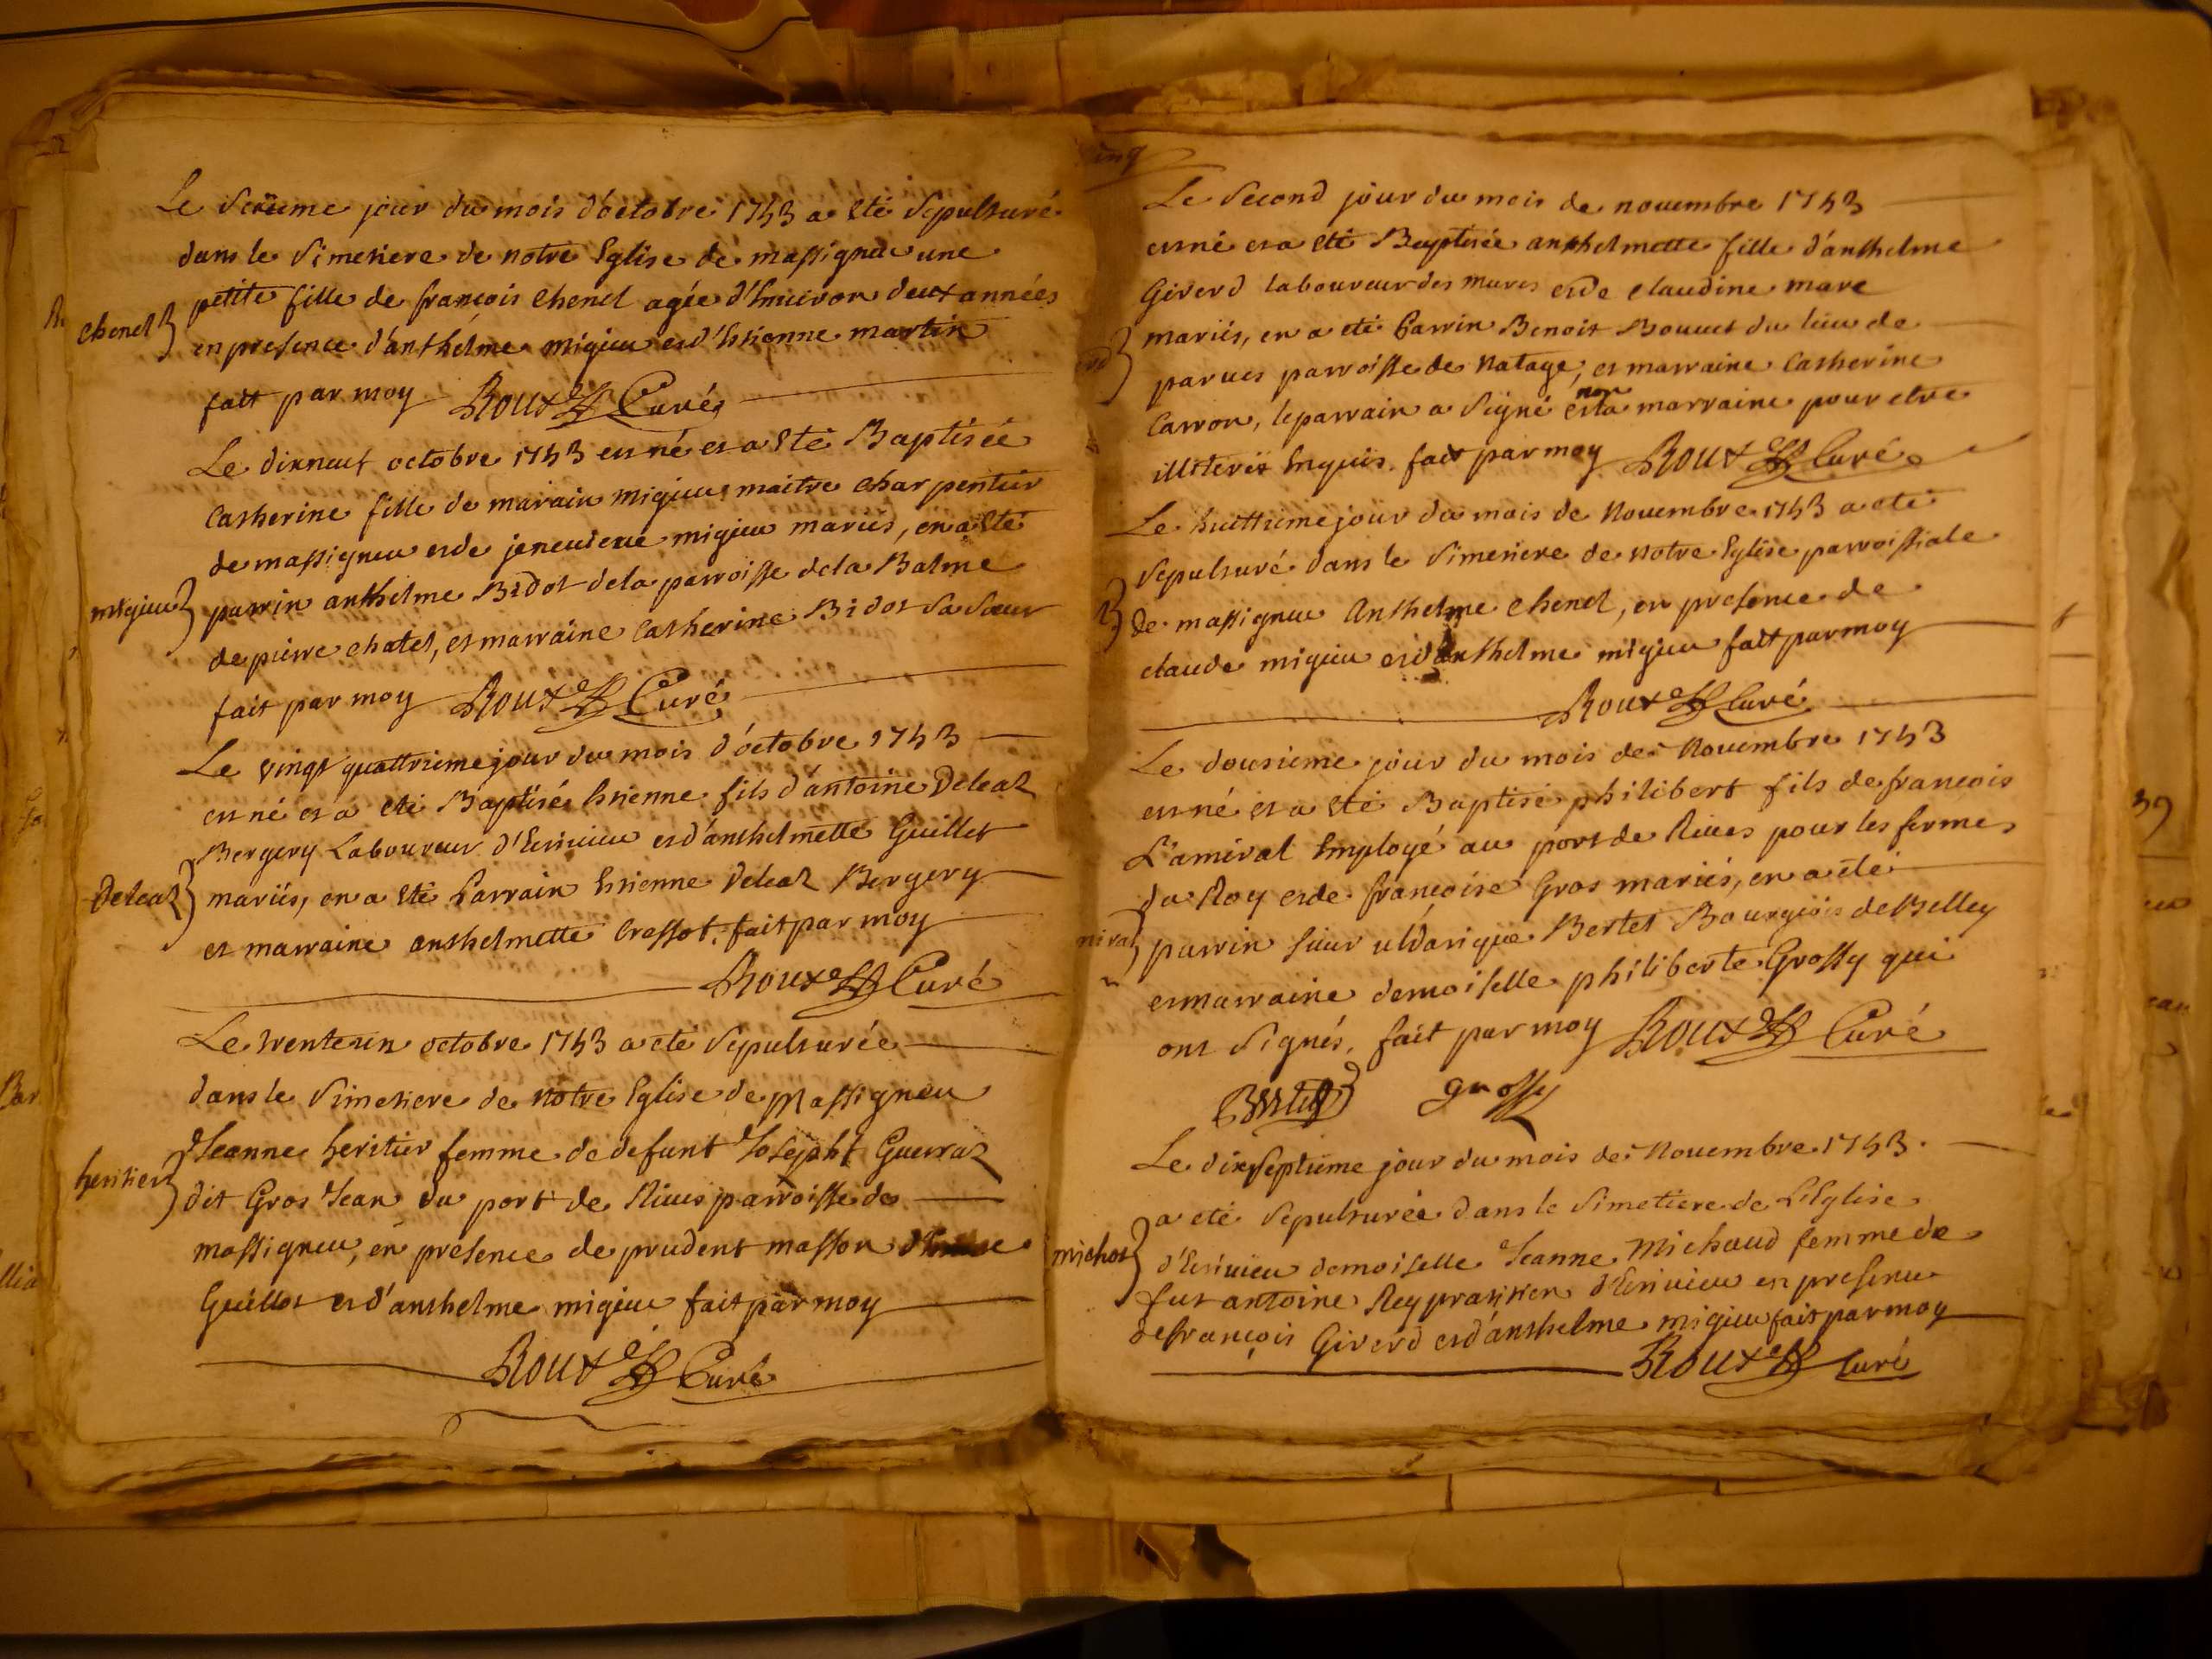 Le seizieme jour du mois d'octobre 1743 a eté sepulturé
dans le simetiere de notre Eglise de massigneu une
petite fille de françois Chenel agée d'Environ deux années
Chenel
en presence d'anthelme migieu et d'Estienne martin
fait par moy Roux Curé
Le dixneuf octobre 1743 est né et a eté Baptisée
Catherine fille de marain migieu maitre charpentier
de massigneu et de jeneuieue migieu mariés, en a eté
migieu
parrin anthelme Bidot de la parroisse de la Balme
de pierre chatel, et marraine Catherine Bidot sa sœur
fait par moy Roux Curé
Le vingt quattrieme jour du mois d'octobre 1743
est né et a eté Baptisé Estienne fils d'antoine Deleaz
Bergery Laboureur d'Ecriuieu et d'anthelmette Guillet
Deleaz
mariés, en a eté Parrain Estienne Deleaz Bergery
et marraine anthelmette Crassot. fait par moy
Roux Curé
Le trenteun octobre 1743 a eté sepulturée
dans le simetiere de notre Eglise de Massigneu
Jeanne heritier femme de defunt Joseph Guerraz
heritier
dit Gros Jean du port de Riues parroisse de
massigneu, en presence de prudent masson
Guillot et d'anthelme migieu fait par moy
Roux Curé
Le second jour du mois de nouembre 1743
est né et a eté Baptisée anthelmette fille d'anthelme
Girerd laboureur des mures et de claudine mare
mariés, en a eté Parrin Benoit Bouuet du lieu de
parues parroisse de Natage, et marraine Catherine
Carron, le parrain a signé non la marraine pour etre
illiterée Enquis. fait par moy Roux Curé
Le huittiemejour du mois de Nouembre 1743 a eté
sepulturé dans le simetiere de notre Eglise parroissiale
de massigneu Anthelme Chenel, en presence de
claude migieu et d'anthelme migieu fait par moy
Roux Curé
Le dousieme jour du mois de Nouembre 1743
est né et a eté Baptisé philibert fils de francois
L'amiral Employé au port de Riues pour les fermes
du Roy et de françoise Gros mariés, en a eté
miral
parrin sieur uldarique Bertet Bourgeois de Belley
et marraine demoiselle philiberte Grossy qui
ont signés, fait par moy Roux Curé
Bertet grossy
Le dixseptieme jour du mois de Nouembre 1743.
a eté sepulturée dans le simetiere de L'Eglise
michot
d'Ecriuieu demoiselle Jeanne Michaud femme de
fut antoine Rey pratitien d'Ecriuieu en presence
de françois Girerd et d'anthelme migieu fait par moy
Roux Curé
39